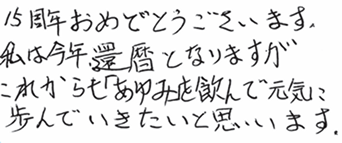 15周年おめでとうございます.
私は今年還暦となりますが
これからも「あゆみ」を飲んで元気に
歩んでいきたいと思います.